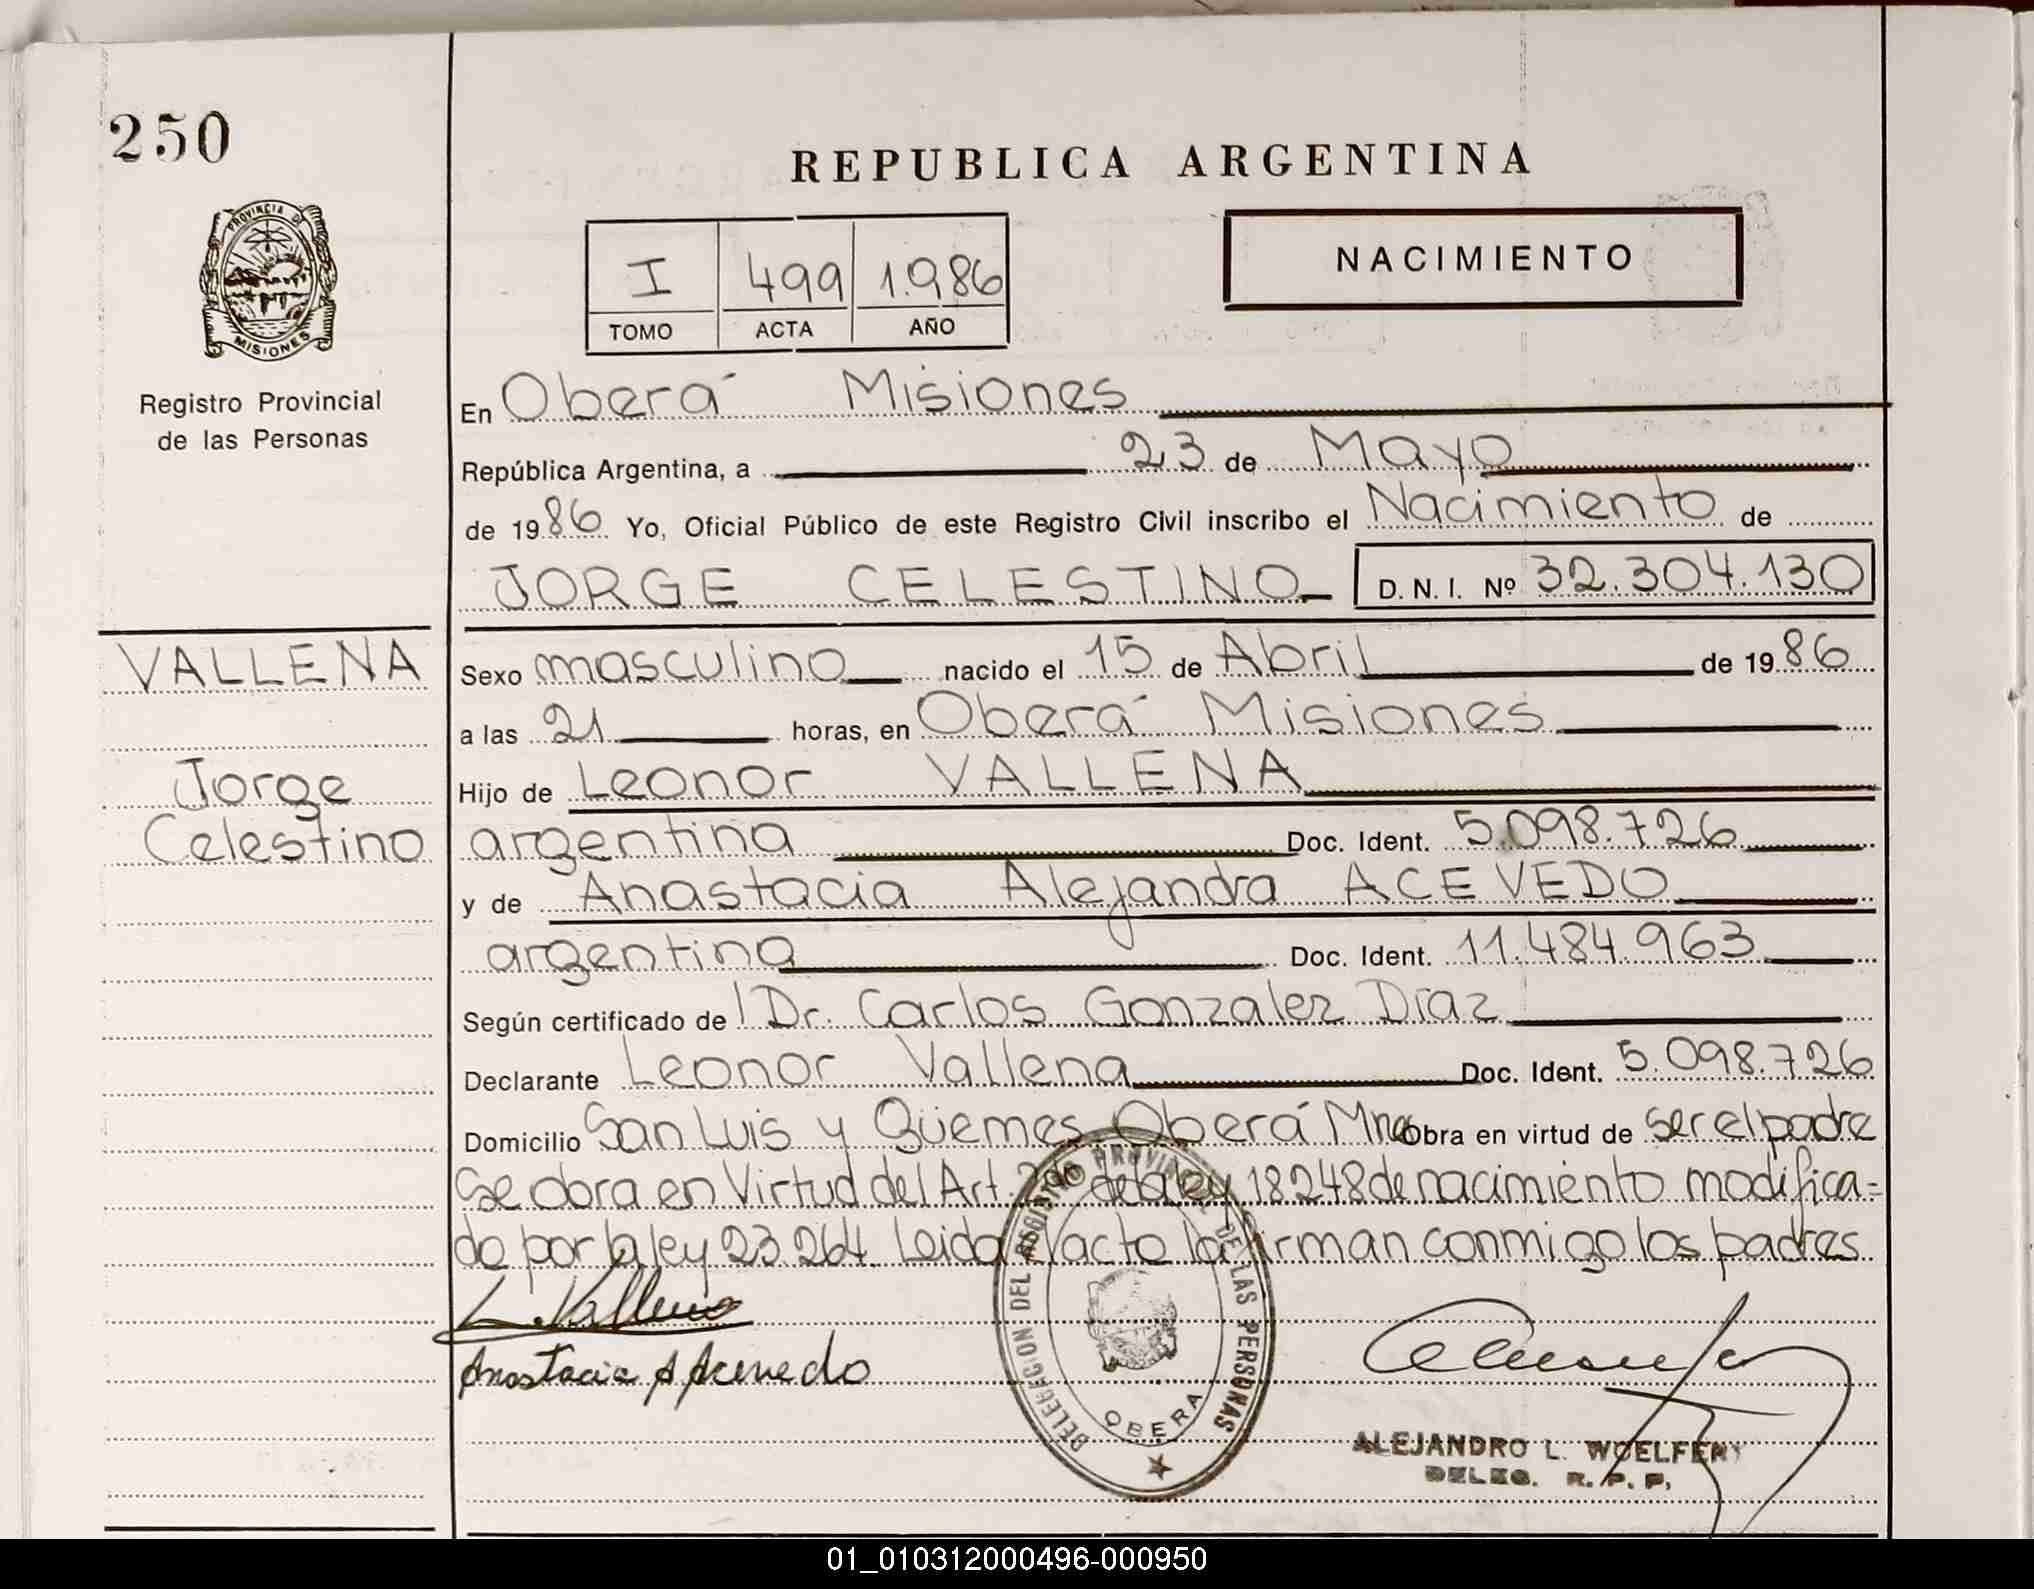 250
REPUBLICA ARGENTINA
PROVINCIA DE
MISIONES
I 499 1.986
TOMO ACTA AÑO
NACIMIENTO
Registro Provincial
de las Personas
En Oberá Misiones
República Argentina, a 23 de Mayo
de 1986 Yo, Oficial Público de este Registro Civil inscribo el Nacimiento de
JORGE CELESTINO D. N. I. Nº 32.304.130
VALLENA
Jorge
Celestino
Sexo masculino nacido el 15 de Abril de 1986
a las 21 horas, en Oberá Misiones
Hijo de Leonor VALLENA
argentina Doc. Ident. 5.098.726
y de Anastacia Alejandra ACEVEDO
argentina Doc. Ident. 11.484.963
Según certificado de Dr. Carlos Gonzalez Diaz
Declarante Leonor Vallena Doc. Ident. 5.098.726
Domicilio San Luis y Güemes Oberá Mnes Obra en virtud de ser el padre
Se obra en Virtud del Art. 2do de la ley 18248 de nacimiento modifica=
do por la ley 23.264. Leida l'acto la firman conmigo los padres
L. Vallena
Anastacia A Acevedo
DELEGACION DEL REGISTRO PROVINCIAL DE LAS PERSONAS
OBERA
ALEJANDRO L. WOELFERT
DELEG. R. P. P.
01_010312000496-000950